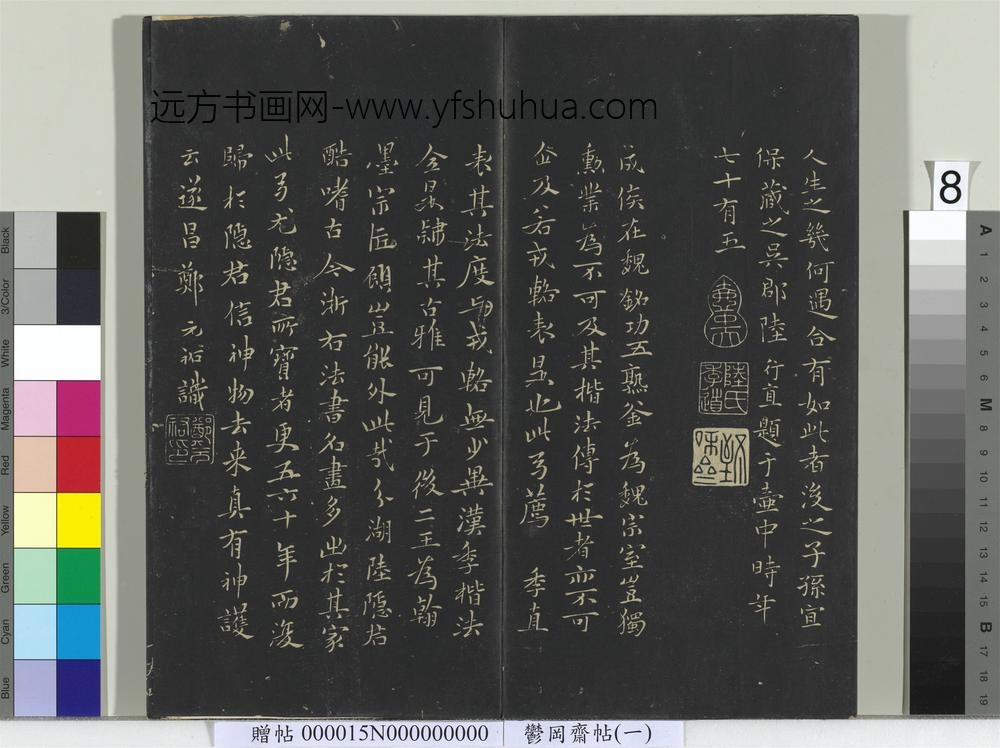 远方书画网-www.yfshuhua.com
人生之幾何遇合有如此者後之子孫宜
保藏之吳郡陸行直題于壺中時年
七十有五
陸氏季道
成侯在魏銘功五熟釜為魏宗室豈獨
勳業為不可及其楷法傳於世者亦不可
企及若戎輅表是也此弓薦季直
表其法度與戎輅無少異漢季楷法
全是隸其古雅可見于後二王為翰
墨宗匠顧豈能外此哉分湖陸隱君
酷嗜古今浙右法書名畫多出於其家
此弓尤隱君所寶者更五六十年而復
歸於隱君信神物去来真有神護
云遂昌鄭元祐識
8
Black
3/Color
White
Magenta
Red
Yellow
Green
Cyan
Blue
A
1
2
3
4
5
6
M
8
9
10
11
12
13
14
15
B
17
18
19
贈帖 000015N000000000 鬱岡齋帖(一)